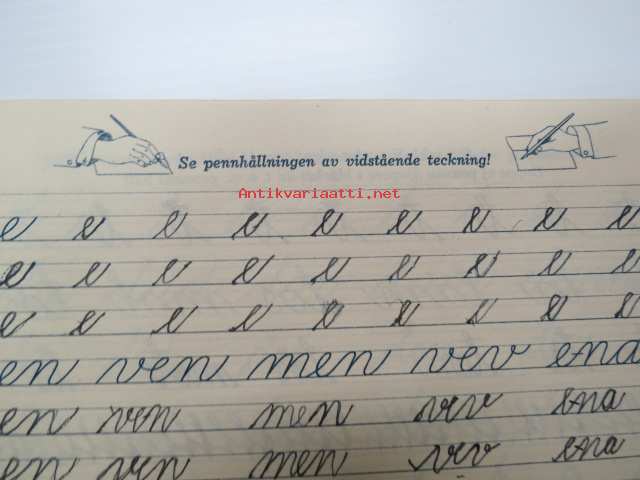 Se pennhållningen av vidstående teckning!
Antikvariaatti.net
e e e e e e e e e
e e e e e e e e e
e e e e e e e e e
en ven men vev ena
en ven men vev ena
en ven men vev ena